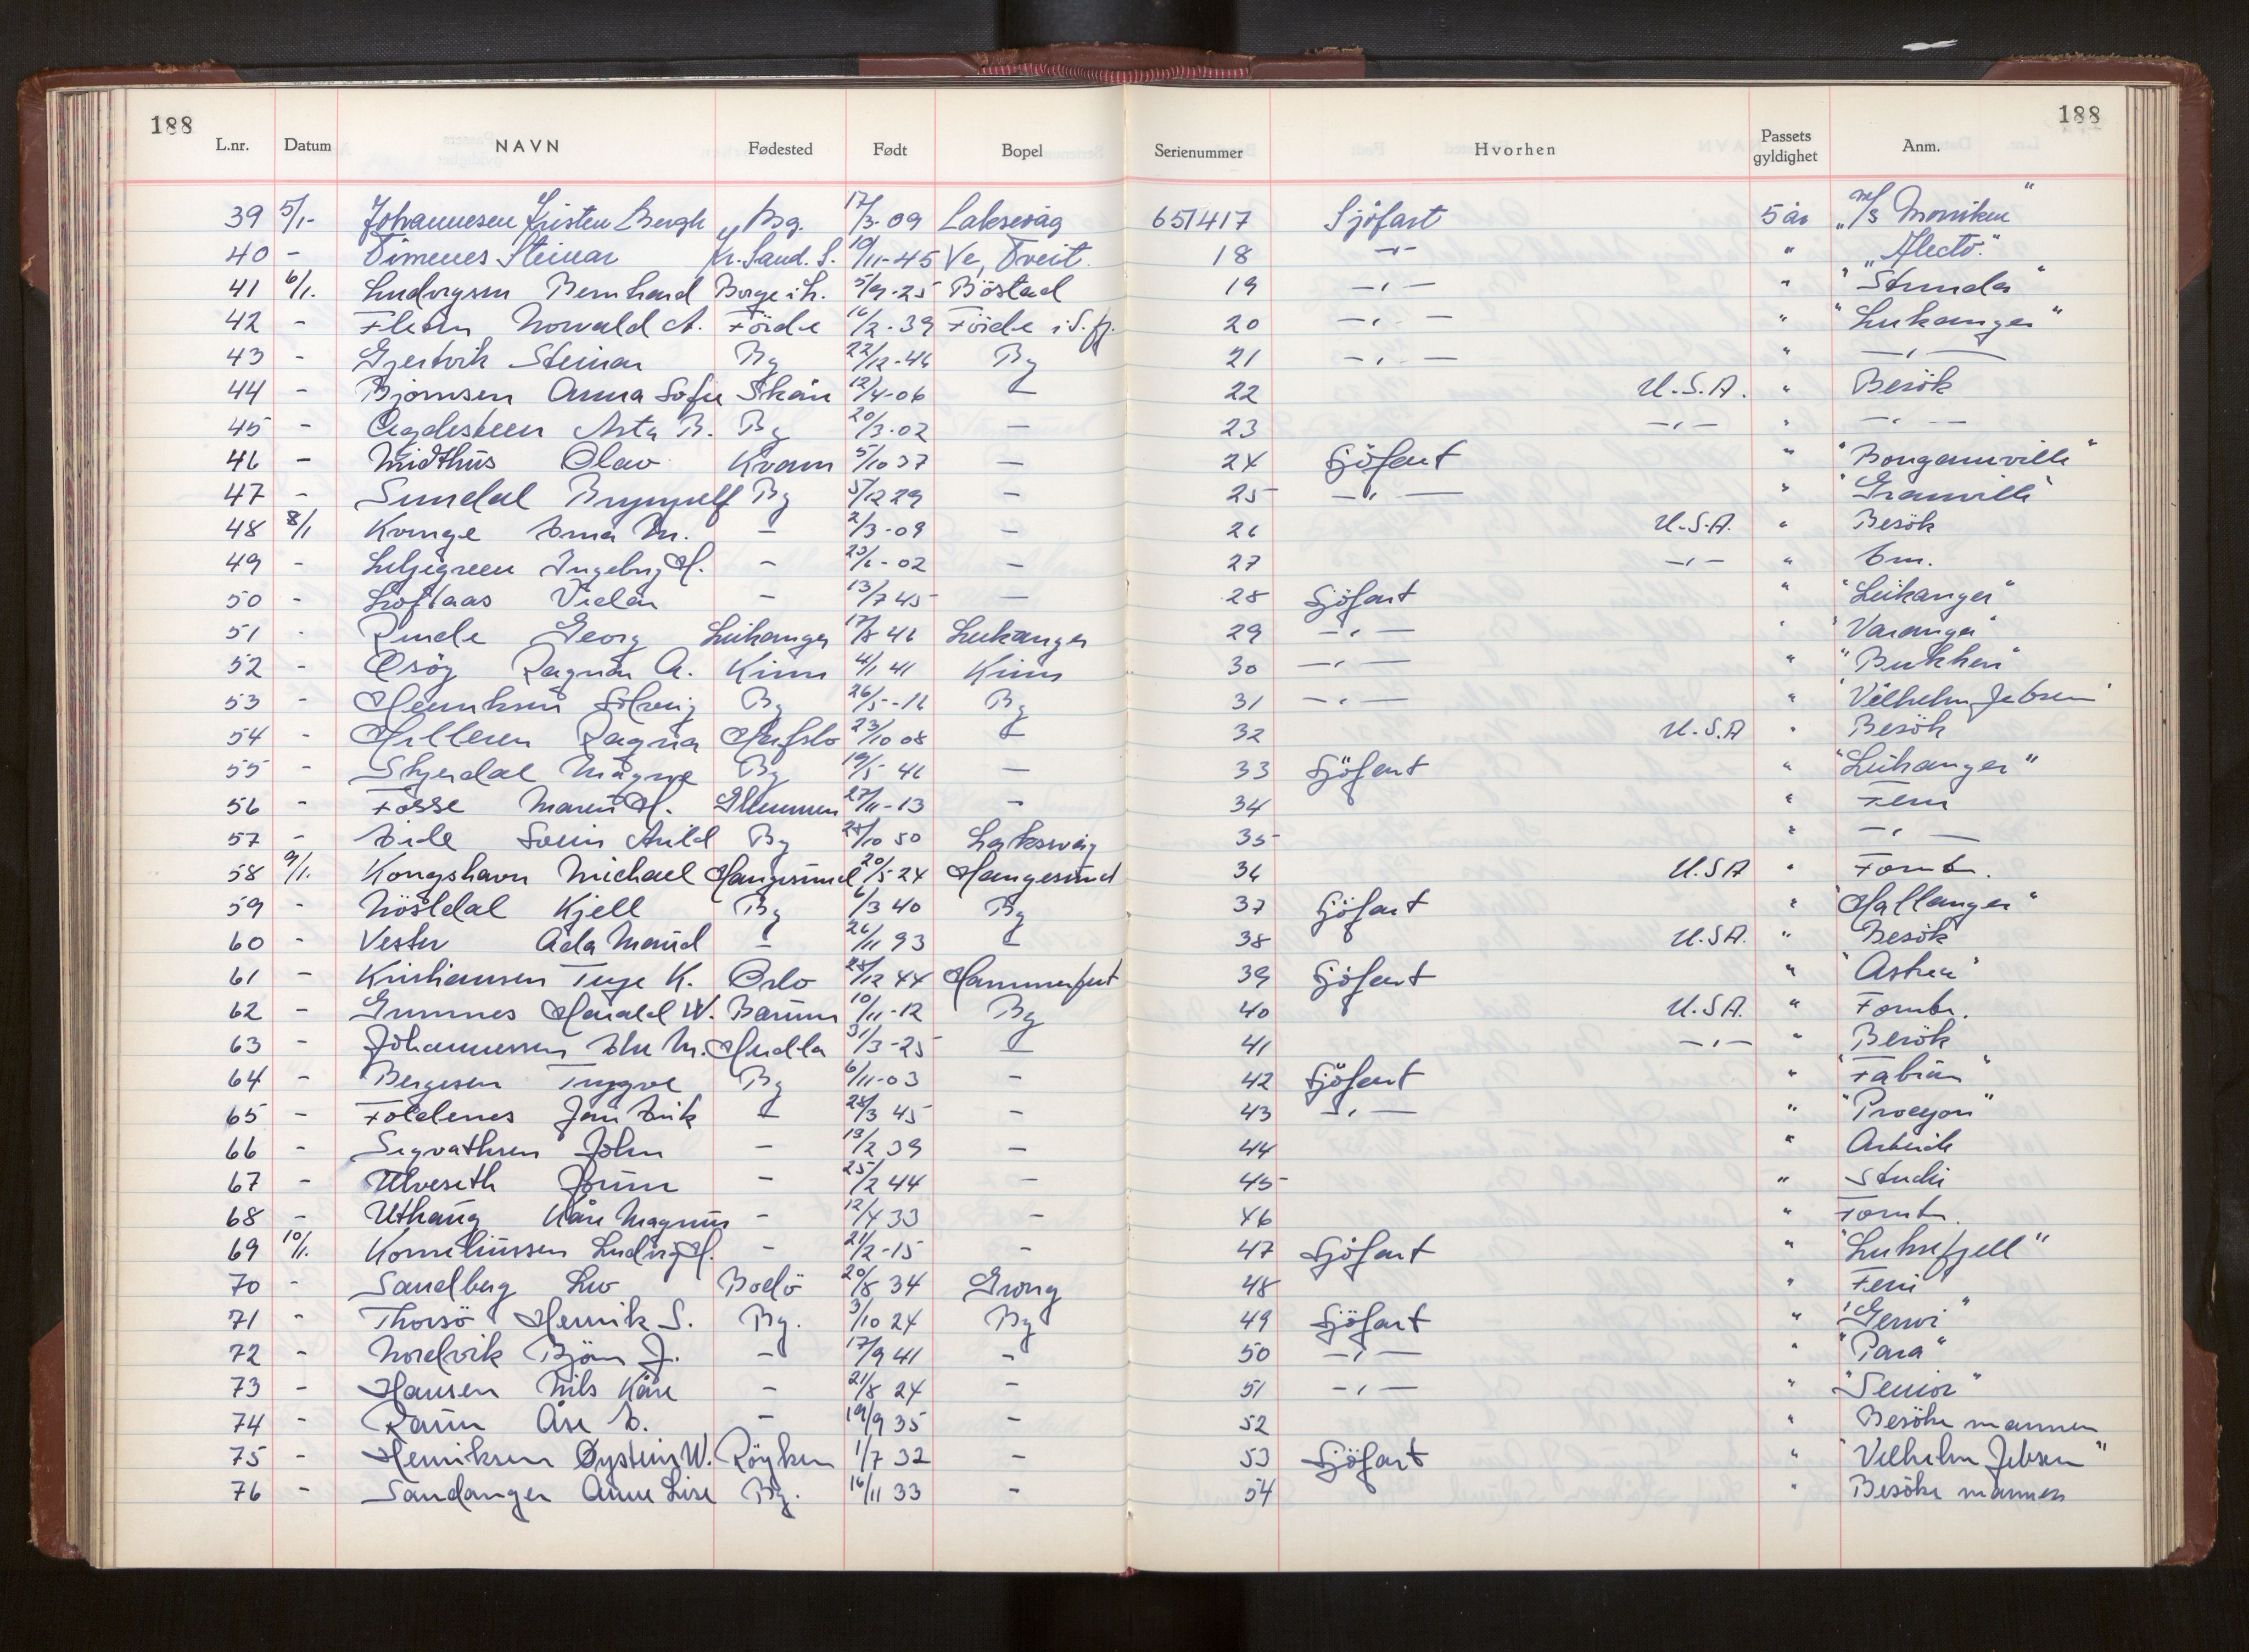 188 188
L.nr. Datum NAVN Fødested Født Bopel Serienummer Hvorhen Passets gyldighet Anm.
39 5/1- Johannesen Kristen Bergh Bg. 17/3-09 Laksevåg 651417 Sjöfart 5 år „M/S Mosniken"
40 - Timenes Steinar Kr.Sand.S. 19/11-45 Ve, Tveit. 18 -"- " „Alecto."
41 6/1. Ludvigsen Bernhard Borge i L. 5/9-25 Böstad 19 -,- " "Strinda"
42 - Norvald A. Förde 16/2-39 Förde i S.fj. 20 -,- " "Leikanger"
43 - Gjertvik Steinar Bg 22/12-46 Bg 21 -,- " -,-
44 - Bjørnsen Anna Sofie 12/4-06 - 22 U.S.A. " Besök
45 - Agdesteen Asta B. Bg 20/3-02 - 23 -,- " -,-
46 - Midthus Olav Kvam 5/10 37 - 24 Sjöfart " "Bougainville"
47 - Sundal Brynjulf Bg 5/12 29 - 25 -,- " "Granville"
48 8/1 Kvinge Erna M. - 2/3-09 - 26 U.S.A. " Besök
49 - Liljegreen Ingebrg H. - 23/6-02 - 27 -,- " Em.
50 - Loftaas Vidar - 13/7 45 - 28 Sjöfart " "Leikanger"
51 - Rinde Georg Leikanger 17/8 46 Leikanger 29 -,- " "Varanger"
52 - Osöy Ragnar A. Kinn 4/1 41 Kinn 30 -,- " "Bukken"
53 - Henriksen Solveig Bg 26/5-16 Bg 31 -,- " "Vilhelm Jebsen"
54 - Hilleren Ragna Hafslo 23/10 08 - 32 U.S.A " Besök
55 - Skjerdal Magne Bg 19/5 46 - 33 Sjöfart " "Leikanger"
56 - Fosse Maren H. Glemmen 27/11-13 - 34 " Ferie
57 - Eide Svein Arild Bg 28/10 50 Laksevåg 35 " -,-
58 9/1. Kongshavn Michael Haugesund 20/5 24 Haugesund 36 U.S.A " Forretn.
59 - Nöstdal Kjell Bg 6/3 40 Bg 37 Sjöfart " "Hallanger"
60 - Vester Ada Maud - 26/11 93 - 38 U.S.A. " Besök
61 - Kristiansen Terje K. Oslo 28/12 44 Hammerfest 39 Sjöfart " "Astrea"
62 - Grimnes Harald W. Bærum 10/11-12 Bg 40 U.S.A. " Forretn.
63 - Johannessen Else M. Herdla 31/3-25 - 41 -,- " Besök
64 - Bergesen Trygve Bg 6/11-03 - 42 Sjöfart " "Fabian"
65 - Foldenes Jan Erik - 28/3 45 - 43 -,- " "Procyon"
66 - Sigvathsen John - 13/2 39 - 44 " Arbeide
67 - Ulveseth Jorunn - 25/2 44 - 45 " Studie
68 - Uthaug Kåre Magnus - 12/4 33 - 46 " Forretn.
69 10/1. Korneliussen Ludvig H. - 21/2-15 - 47 Sjöfart " "Luksefjell"
70 - Sandberg Liv Bodö 20/8 34 Grong 48 " Ferie
71 - Thorsö Henrik S. Bg. 3/10 24 Bg 49 Sjöfart " "Gerwi"
72 - Nordvik Björn J. - 17/9 41 - 50 -,- " "Para"
73 - Hansen Nils Kåre - 21/8 24 - 51 -,- " "Senior"
74 - Raum Åse E. - 19/9 35 - 52 " Besöke mannen
75 - Henriksen Øystein W. Röyken 1/7 32 - 53 Sjöfart " "Vilhelm Jebsen"
76 - Sandanger Anne Lise Bg. 16/11 33 - 54 " Besöke mannen